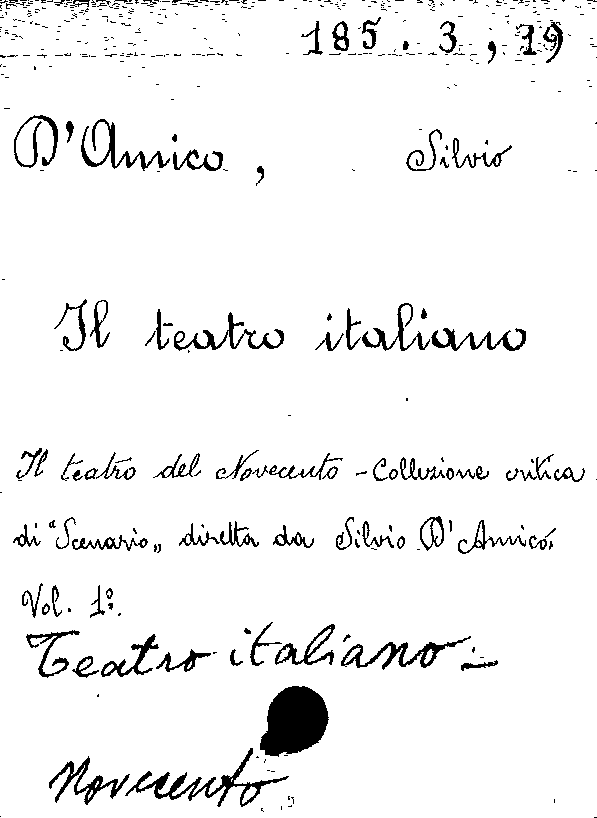 185 . 3 , 19
D'Amico , Silvio
Il teatro italiano
Il teatro del Novecento - Collezione critica
di "Scenario" diretta da Silvio D'Amico.
Vol. 1º.
Teatro italiano -
Novecento